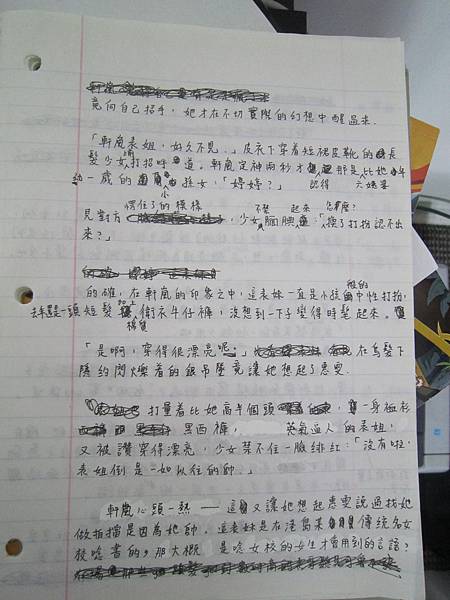 竟向自己招手，她才在不切實際的幻想中醒過來。
「軒嵐表姐，好久不見。」皮衣下穿着短裙皮靴的長
髮少女上前打招呼道。軒嵐定神兩秒才認得那是比她年
幼一歲的小孫女：「婷婷？」
見對方愣住了的樣樣，少女不禁腼腆起來：「怎麼？換了打扮認不出
來？」
的確，在軒嵐的印象之中，這表妹一直是小孩般的中性打扮，
一頭短髮加上衛衣牛仔褲，沒想到一下子變得時髦起來。
「是啊，穿得很漂亮呢。」在烏髮下
隱約閃爍着的銀吊墜竟讓她想起了惠雯。
打量着比她高半個頭，一身恤衫
黑西褲，英氣逼人的表姐，
又被讚穿得漂亮，少女禁不住一臉緋紅：「沒有啦，
表姐倒是一如以往的帥。」
軒嵐心頭一熱——這又讓她想起惠雯說過找她
做拍擋是因為她帥。這表妹是在港島某傳統名女
校唸書的，那大概是唸女校的女生才會用到的言語？